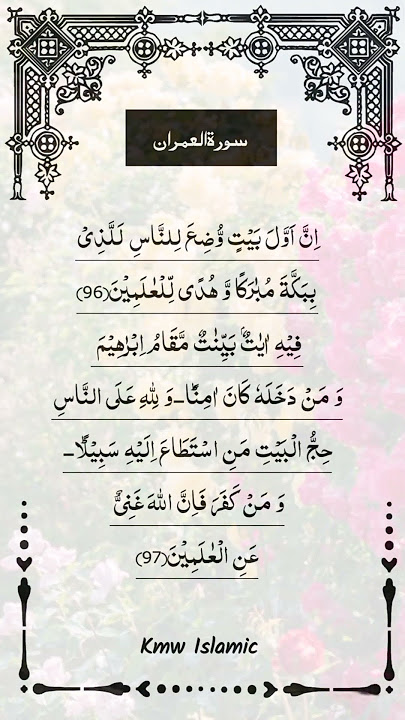 سورةالعمران
اِنَّ اَوَّلَ بَیْتٍ وُّضِعَ لِلنَّاسِ لَلَّذِیْ
بِبَكَّةَ مُبٰرَكًا وَّ هُدًى لِّلْعٰلَمِیْنَ(96)
فِیْهِ اٰیٰتٌۢ بَیِّنٰتٌ مَّقَامُ اِبْرٰهِیْمَ
وَ مَنْ دَخَلَهٗ كَانَ اٰمِنًاؕ-وَ لِلّٰهِ عَلَى النَّاسِ
حِجُّ الْبَیْتِ مَنِ اسْتَطَاعَ اِلَیْهِ سَبِیْلًاؕ-
وَ مَنْ كَفَرَ فَاِنَّ اللّٰهَ غَنِیٌّ
عَنِ الْعٰلَمِیْنَ(97)
Kmw Islamic